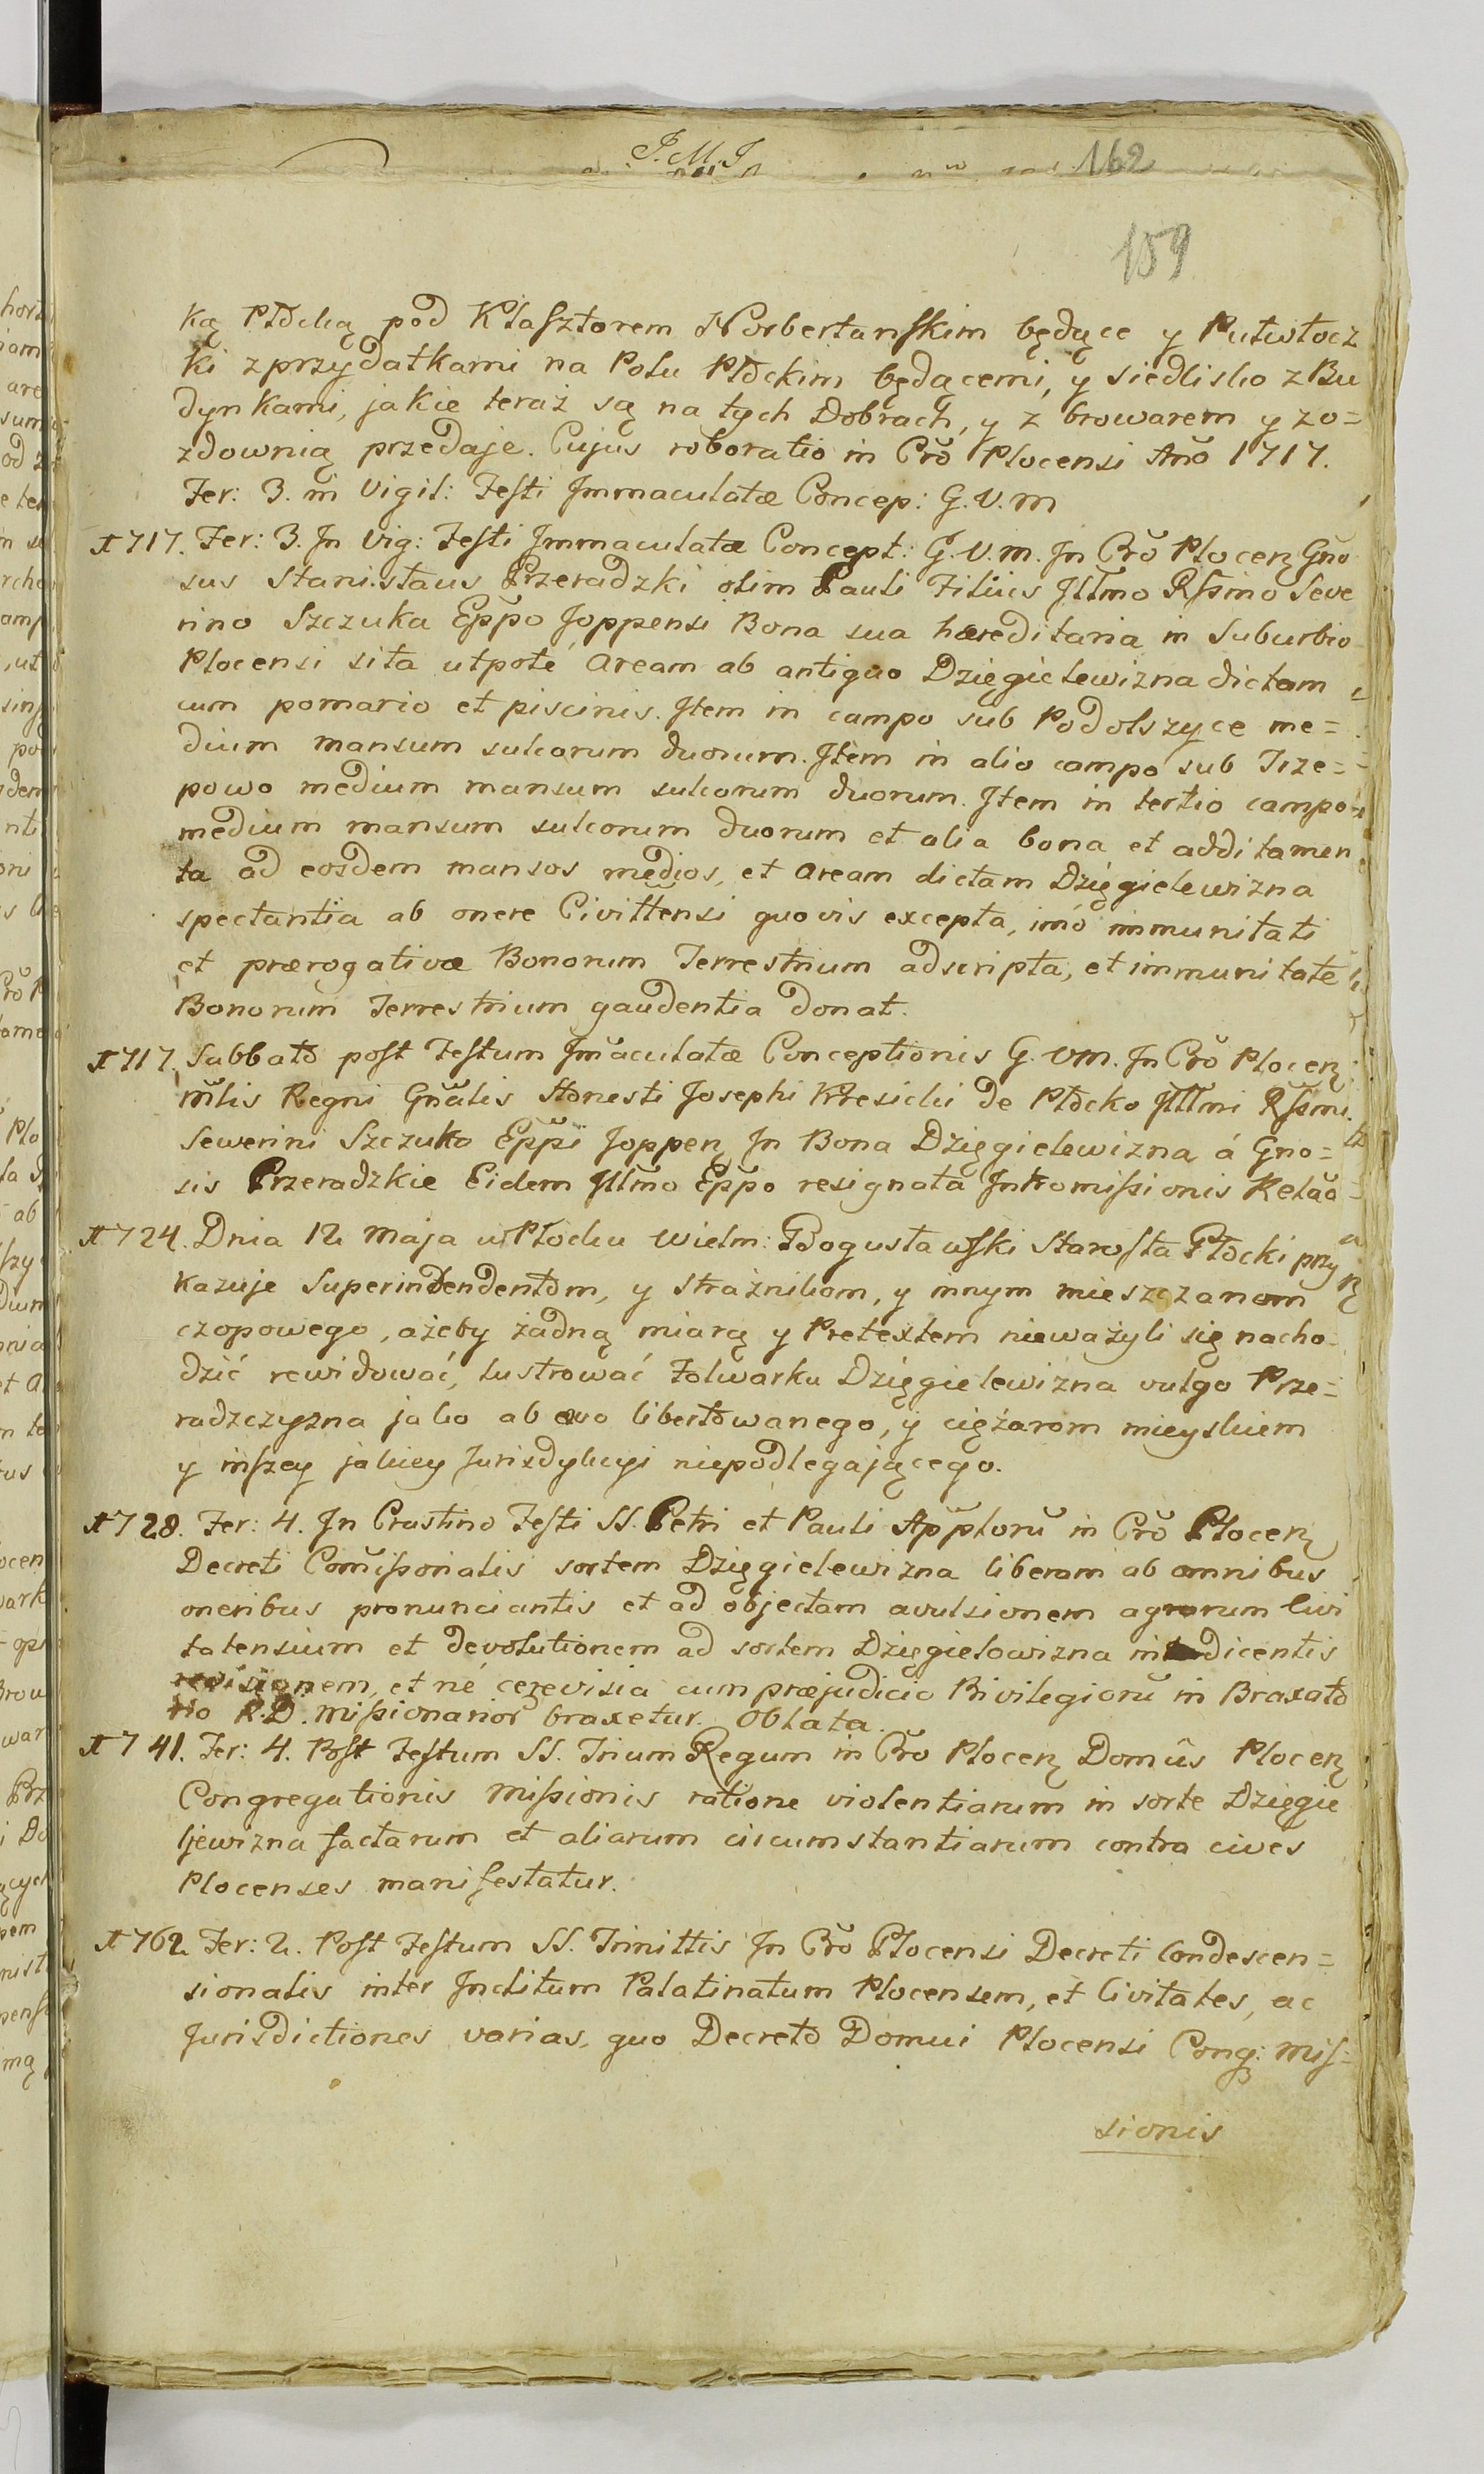 J. M. J
162
159
ką Płocką pod Klasztorem Norbertanskim będące y Pułwłocz
ki z przydatkami na Polu Płockim będącemi, y siedlisko z Bu
dynkami, jakie teraz są na tych Dobrach, y z browarem y zo=
zdownią przedaje. Cujus roboratio in Crõ Plocensi Año 1717.
Fer: 3. in Vigil: Festi Immaculatæ Concep: G. V. M
1717. Fer: 3. In Vig: Festi Immaculatæ Concept: G. V. M. In Crõ Plocen Gño
sus Stanislaus Przeradzki olim Pauli Filius Illmo Rssmo Seve
rino Szczuka Eppo Joppensi Bona sua hæreditaria in Suburbio
Plocensi sita utpote Aream ab antiquo Dzięgielewizna dictam
cum pomario et piscinis. Item in campo sub Podolszyce me=
dium mansum sulcorum duorum. Item in alio campo sub Trze=
powo medium mansum sulcorum duorum. Item in tertio campo
medium mansum sulcorum duorum et alia bona et additamen
ta ad eosdem mansos medios, et Aream dictam Dzięgielewizna
spectantia ab onere Civittensi quovis excepta, imó immunitati
et prærogativæ Bonorum Terrestrium adscripta, et immunitate
Bonorum Terrestrium gaudentia donat.
1717. Sabbato post Festum Im̃aculatæ Conceptionis G. VM. In Crõ Plocen
Mlis Regni Gñalis Honesti Josephi Krzesicki de Płocko Illmi Rssmi
Sewerini Szczuka Eppi Joppen In Bona Dzięgielewizna á Gno=
sis Przeradzkie Eidem Illmo Eppo resignata Intromissionis Relaõ
1724. Dnia 12 Maja w Płocku Wielm: Bogusławski Starosta Płocki przy
kazuje Superintendentom, y Strażnikom, y innym mieszczanom
czopowego, ażeby żadną miarą y Pretextem nieważyli się nacho=
dzić rewidować, lustrować Folwarku Dzięgielewizna vulgo Prze=
radzczyzna jako ab ævo libertowanego, y ciężarom mieyskiem
y inszey jakiey Jurisdykcyi niepodlegającego.
1728. Fer: 4. In Crastino Festi SS. Petri et Pauli App̃lorũ in Crõ Plocen
Decreti Com̃issorialis sortem Dzięgielewizna liberam ab omnibus
oneribus pronunciantis et ad objectam avulsionem agrorum Civi
tatensium et devolutionem ad sortem Dzięgielowizna indicentis
revisionem, et ne cerevisia cum præjudicio Privilegiorũ in Braxato
rio R.D. Missionarior̃ braxetur. Oblata.
1741. Fer: 4. Post Festum SS. Trium Regum in Crõ Plocen Domûs Plocen
Congregationis Missionis ratione violentiarum in sorte Dzięgie
ljewizna factarum et aliarum circumstantiarum contra cives
Plocenses manifestatur.
1762. Fer: 2. Post Festum SS. Trinittis In Crõ Plocensi Decreti Condescen=
sionalis inter Inclitum Palatinatum Plocensem, et Civitates, ac
Jurisdictiones varias, quo Decreto Domui Plocensi Cong: Mis=
sionis